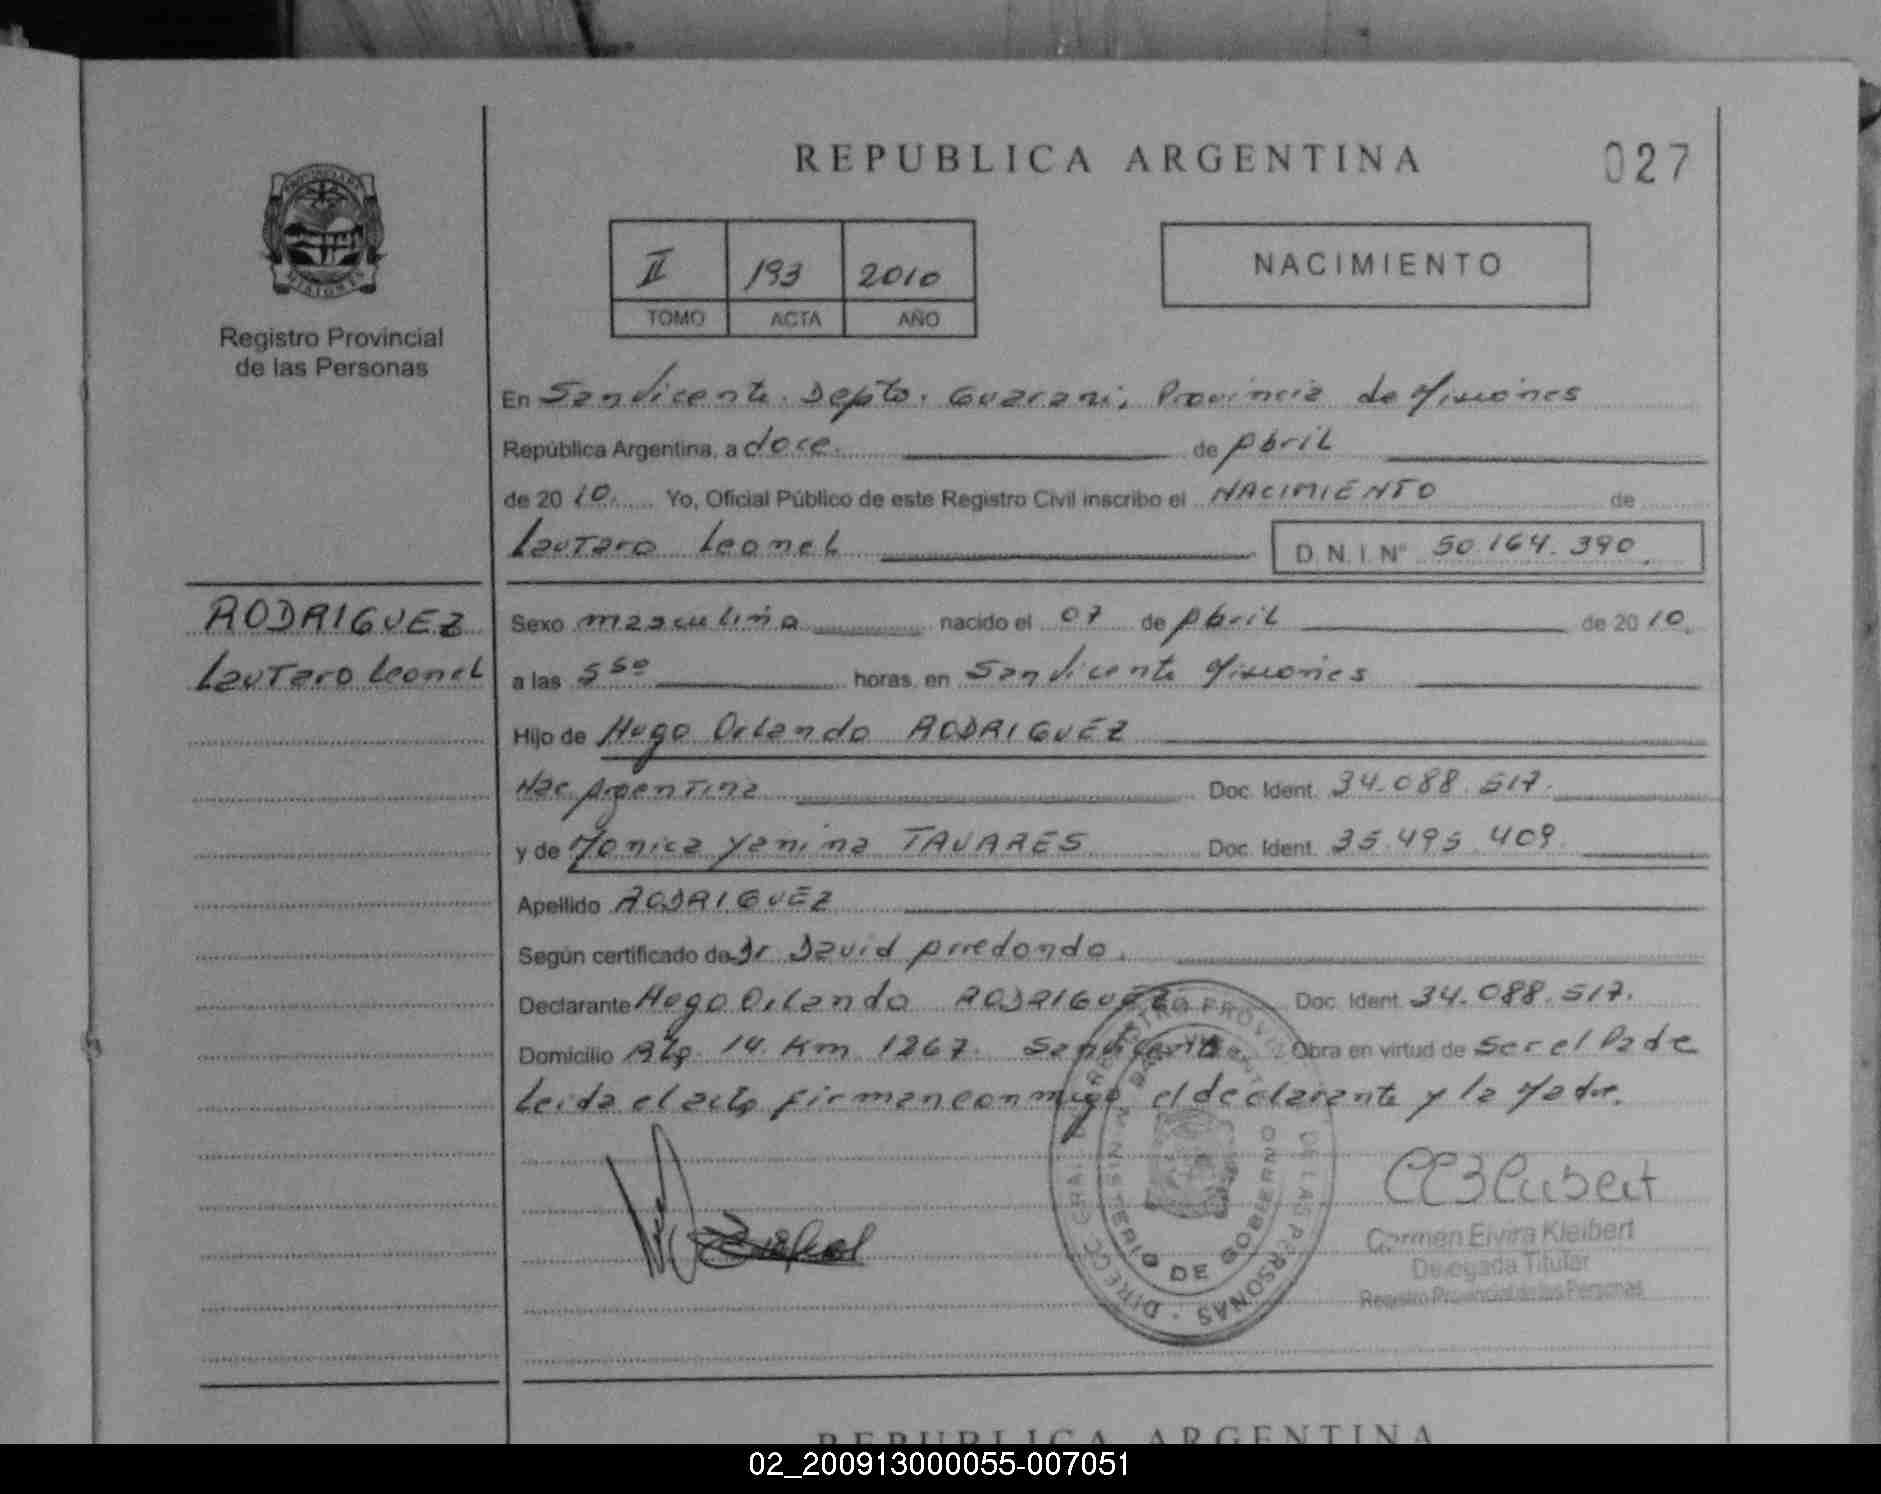 REPUBLICA ARGENTINA
027
II 193 2010
TOMO ACTA AÑO
NACIMIENTO
Registro Provincial
de las Personas
En San Vicente. Depto. Guarani, Provincia de Misiones
República Argentina, a doce. de Abril
de 20 10. Yo, Oficial Público de este Registro Civil inscribo el NACIMIENTO de
Lautaro Leonel D.N.I. Nº 50.164.390
RODRIGUEZ
Lautaro Leonel
Sexo masculino nacido el 07 de Abril de 20 10.
a las 5 50 horas, en San Vicente Misiones
Hijo de Hugo Orlando RODRIGUEZ
Nac Argentina Doc. Ident. 34.088.517.
y de Monica Yanina TAVARES Doc. Ident. 35.495.409.
Apellido RODRIGUEZ
Según certificado de Dr David Arredondo.
Declarante Hugo Orlando RODRIGUEZ Doc. Ident. 34.088.517.
Domicilio Rta. 14. Km 1267. San Vicente Obra en virtud de ser el Padre
Leida el acta firman conmigo el declarante y la Madre.
DIRECC. GRAL. DEL REGISTRO PROVINCIAL DE LAS PERSONAS
MINISTERIO DE GOBERNO
SAN VICENTE
Carmen Elvira Kleibert
Delegada Titular
Registro Provincial de las Personas
REPUBLICA ARGENTINA
02_200913000055-007051